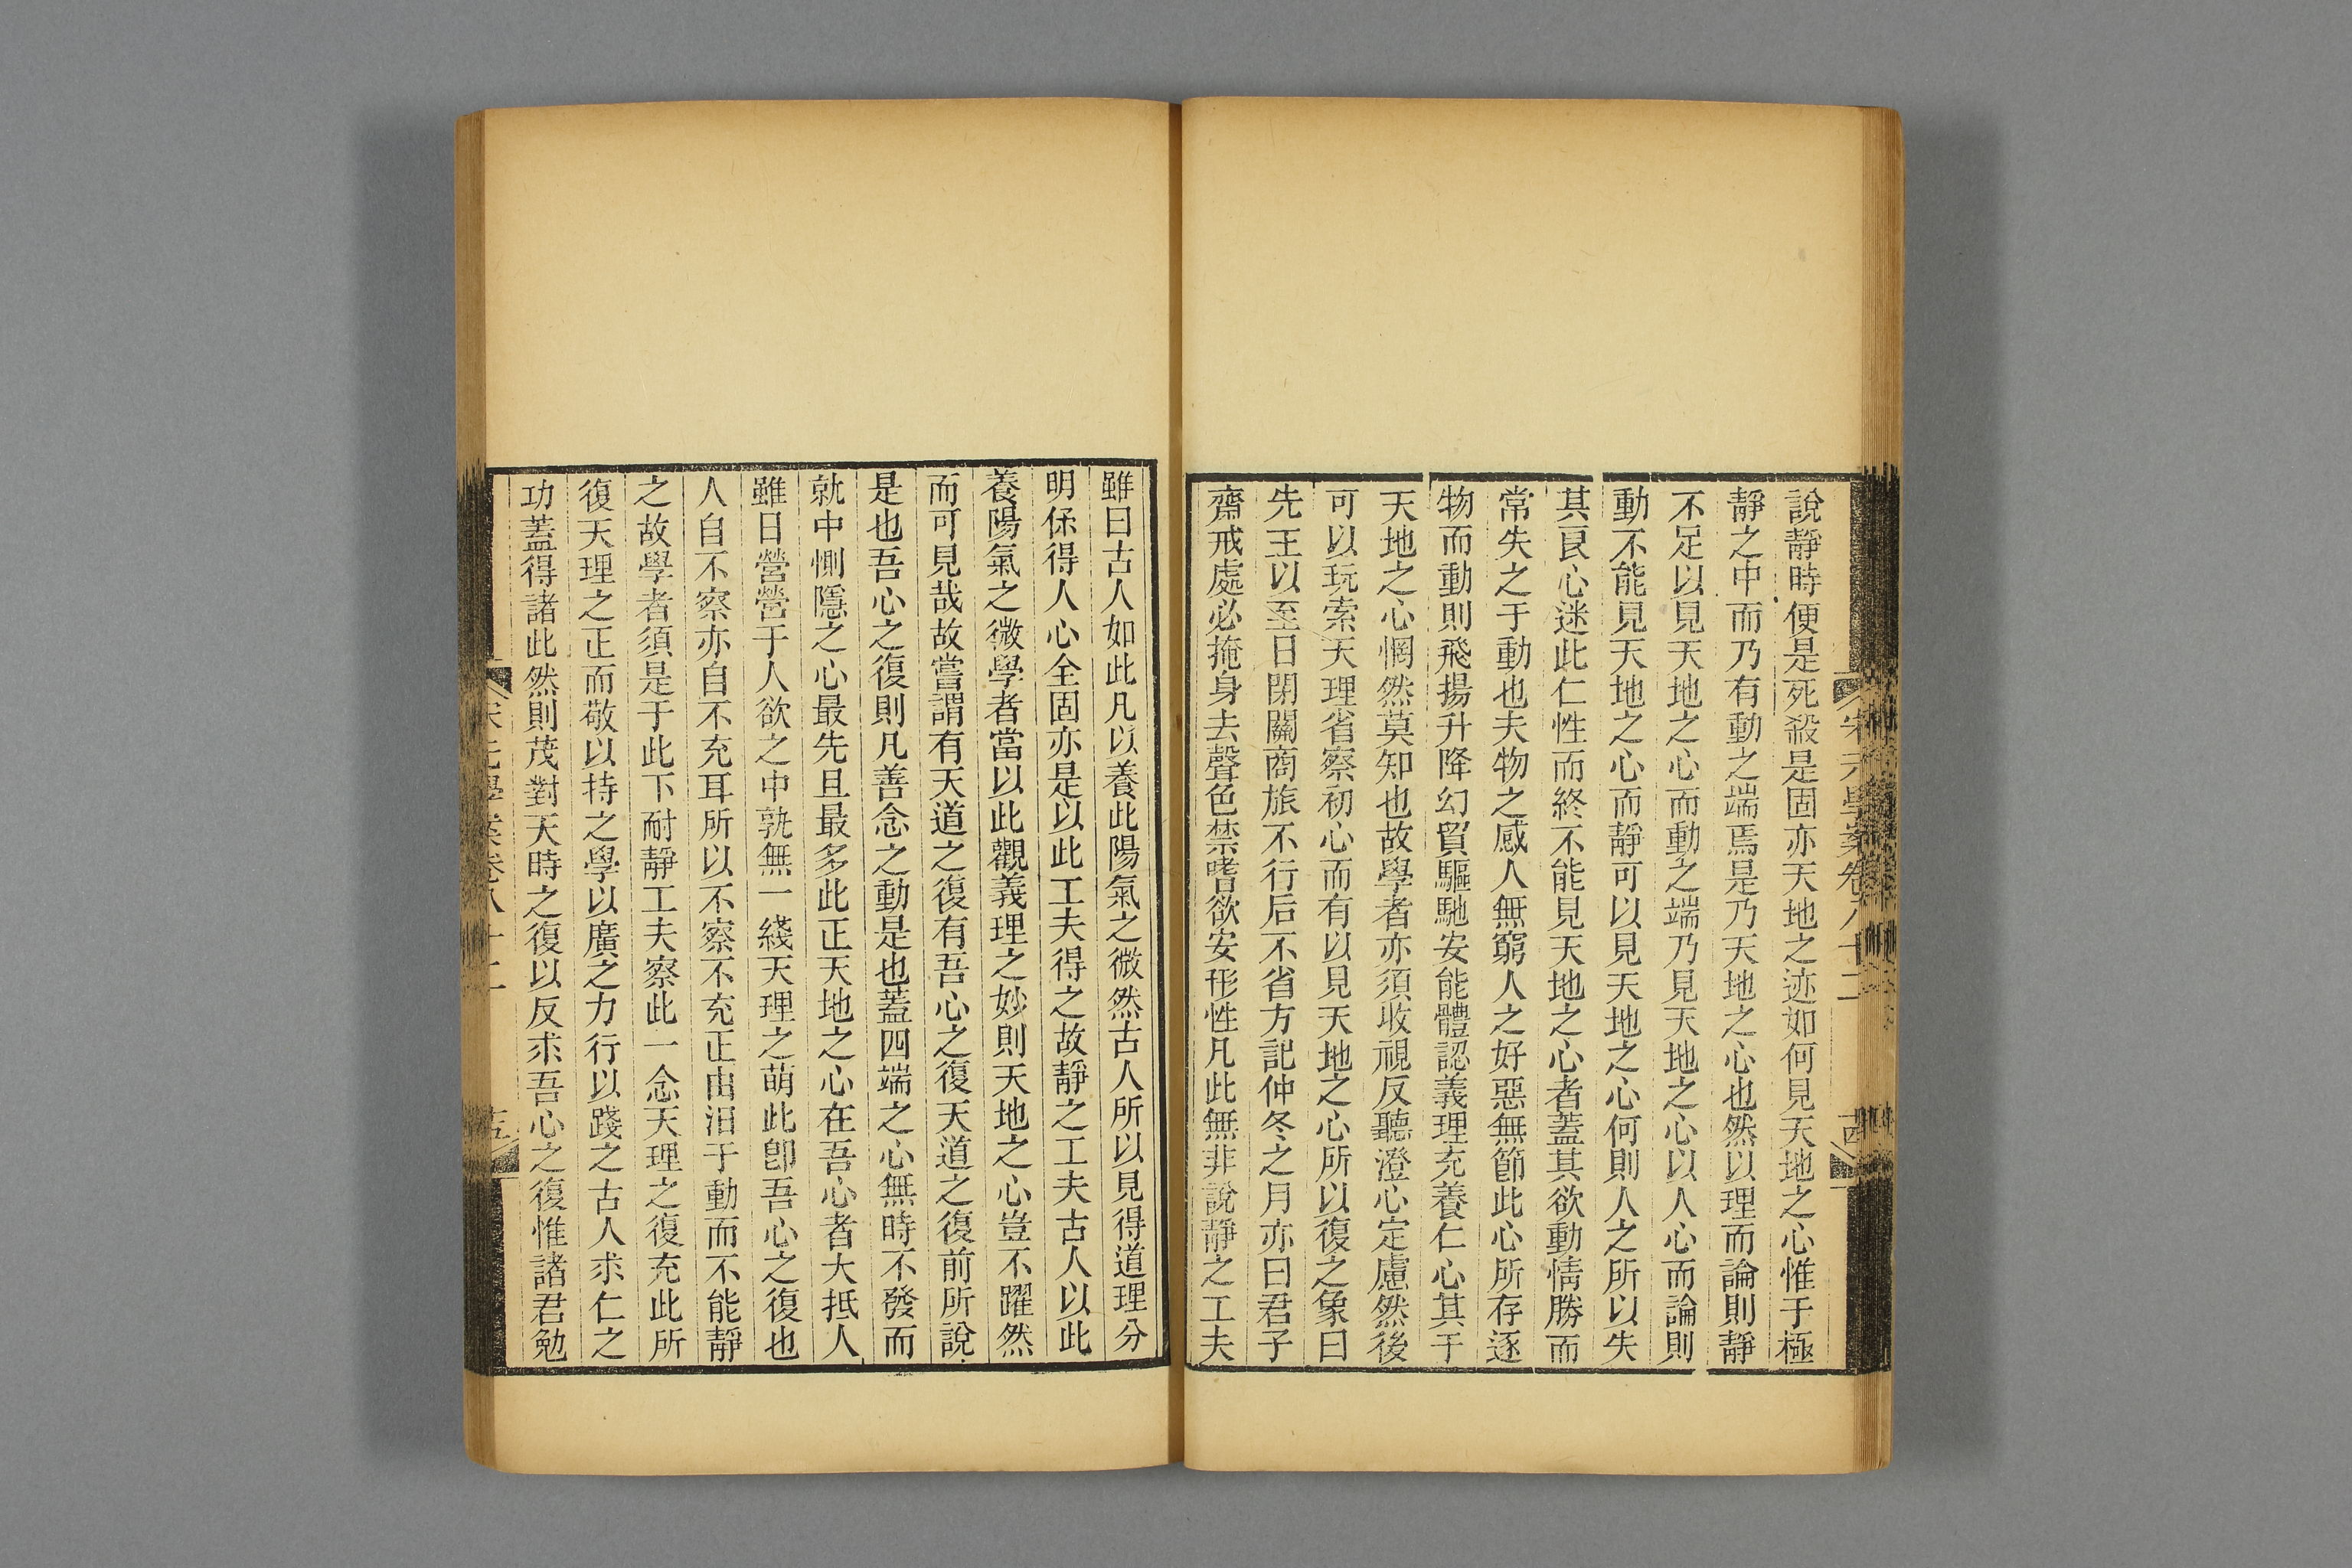 宋元學案卷八十二
十四
說靜時便是死殺是固亦天地之迹如何見天地之心惟于極
靜之中而乃有動之端焉是乃天地之心也然以理而論則靜
不足以見天地之心而動之端乃見天地之心以人心而論則
動不能見天地之心而靜可以見天地之心何則人之所以失
其良心迷此仁性而終不能見天地之心者蓋其欲動情勝而
常失之于動也夫物之感人無窮人之好惡無節此心所存逐
物而動則飛揚升降幻貿驅馳安能體認義理充養仁心其于
天地之心惘然莫知也故學者亦須收視反聽澄心定慮然後
可以玩索天理省察初心而有以見天地之心所以復之象曰
先王以至日閉關商旅不行后不省方記仲冬之月亦曰君子
齋戒處必掩身去聲色禁嗜欲安形性凡此無非說靜之工夫
雖曰古人如此凡以養此陽氣之微然古人所以見得道理分
明保得人心全固亦是以此工夫得之故靜之工夫古人以此
養陽氣之微學者當以此觀義理之妙則天地之心豈不躍然
而可見哉故嘗謂有天道之復有吾心之復天道之復前所說
是也吾心之復則凡善念之動是也蓋四端之心無時不發而
就中惻隱之心最先且最多此正天地之心在吾心者大抵人
雖日營營于人欲之中孰無一綫天理之萌此卽吾心之復也
人自不察亦自不充耳所以不察不充正由汨于動而不能靜
之故學者須是于此下耐靜工夫察此一念天理之復充此所
復天理之正而敬以持之學以廣之力行以踐之古人求仁之
功蓋得諸此然則茂對天時之復以反求吾心之復惟諸君勉
宋元學案卷八十二
十五